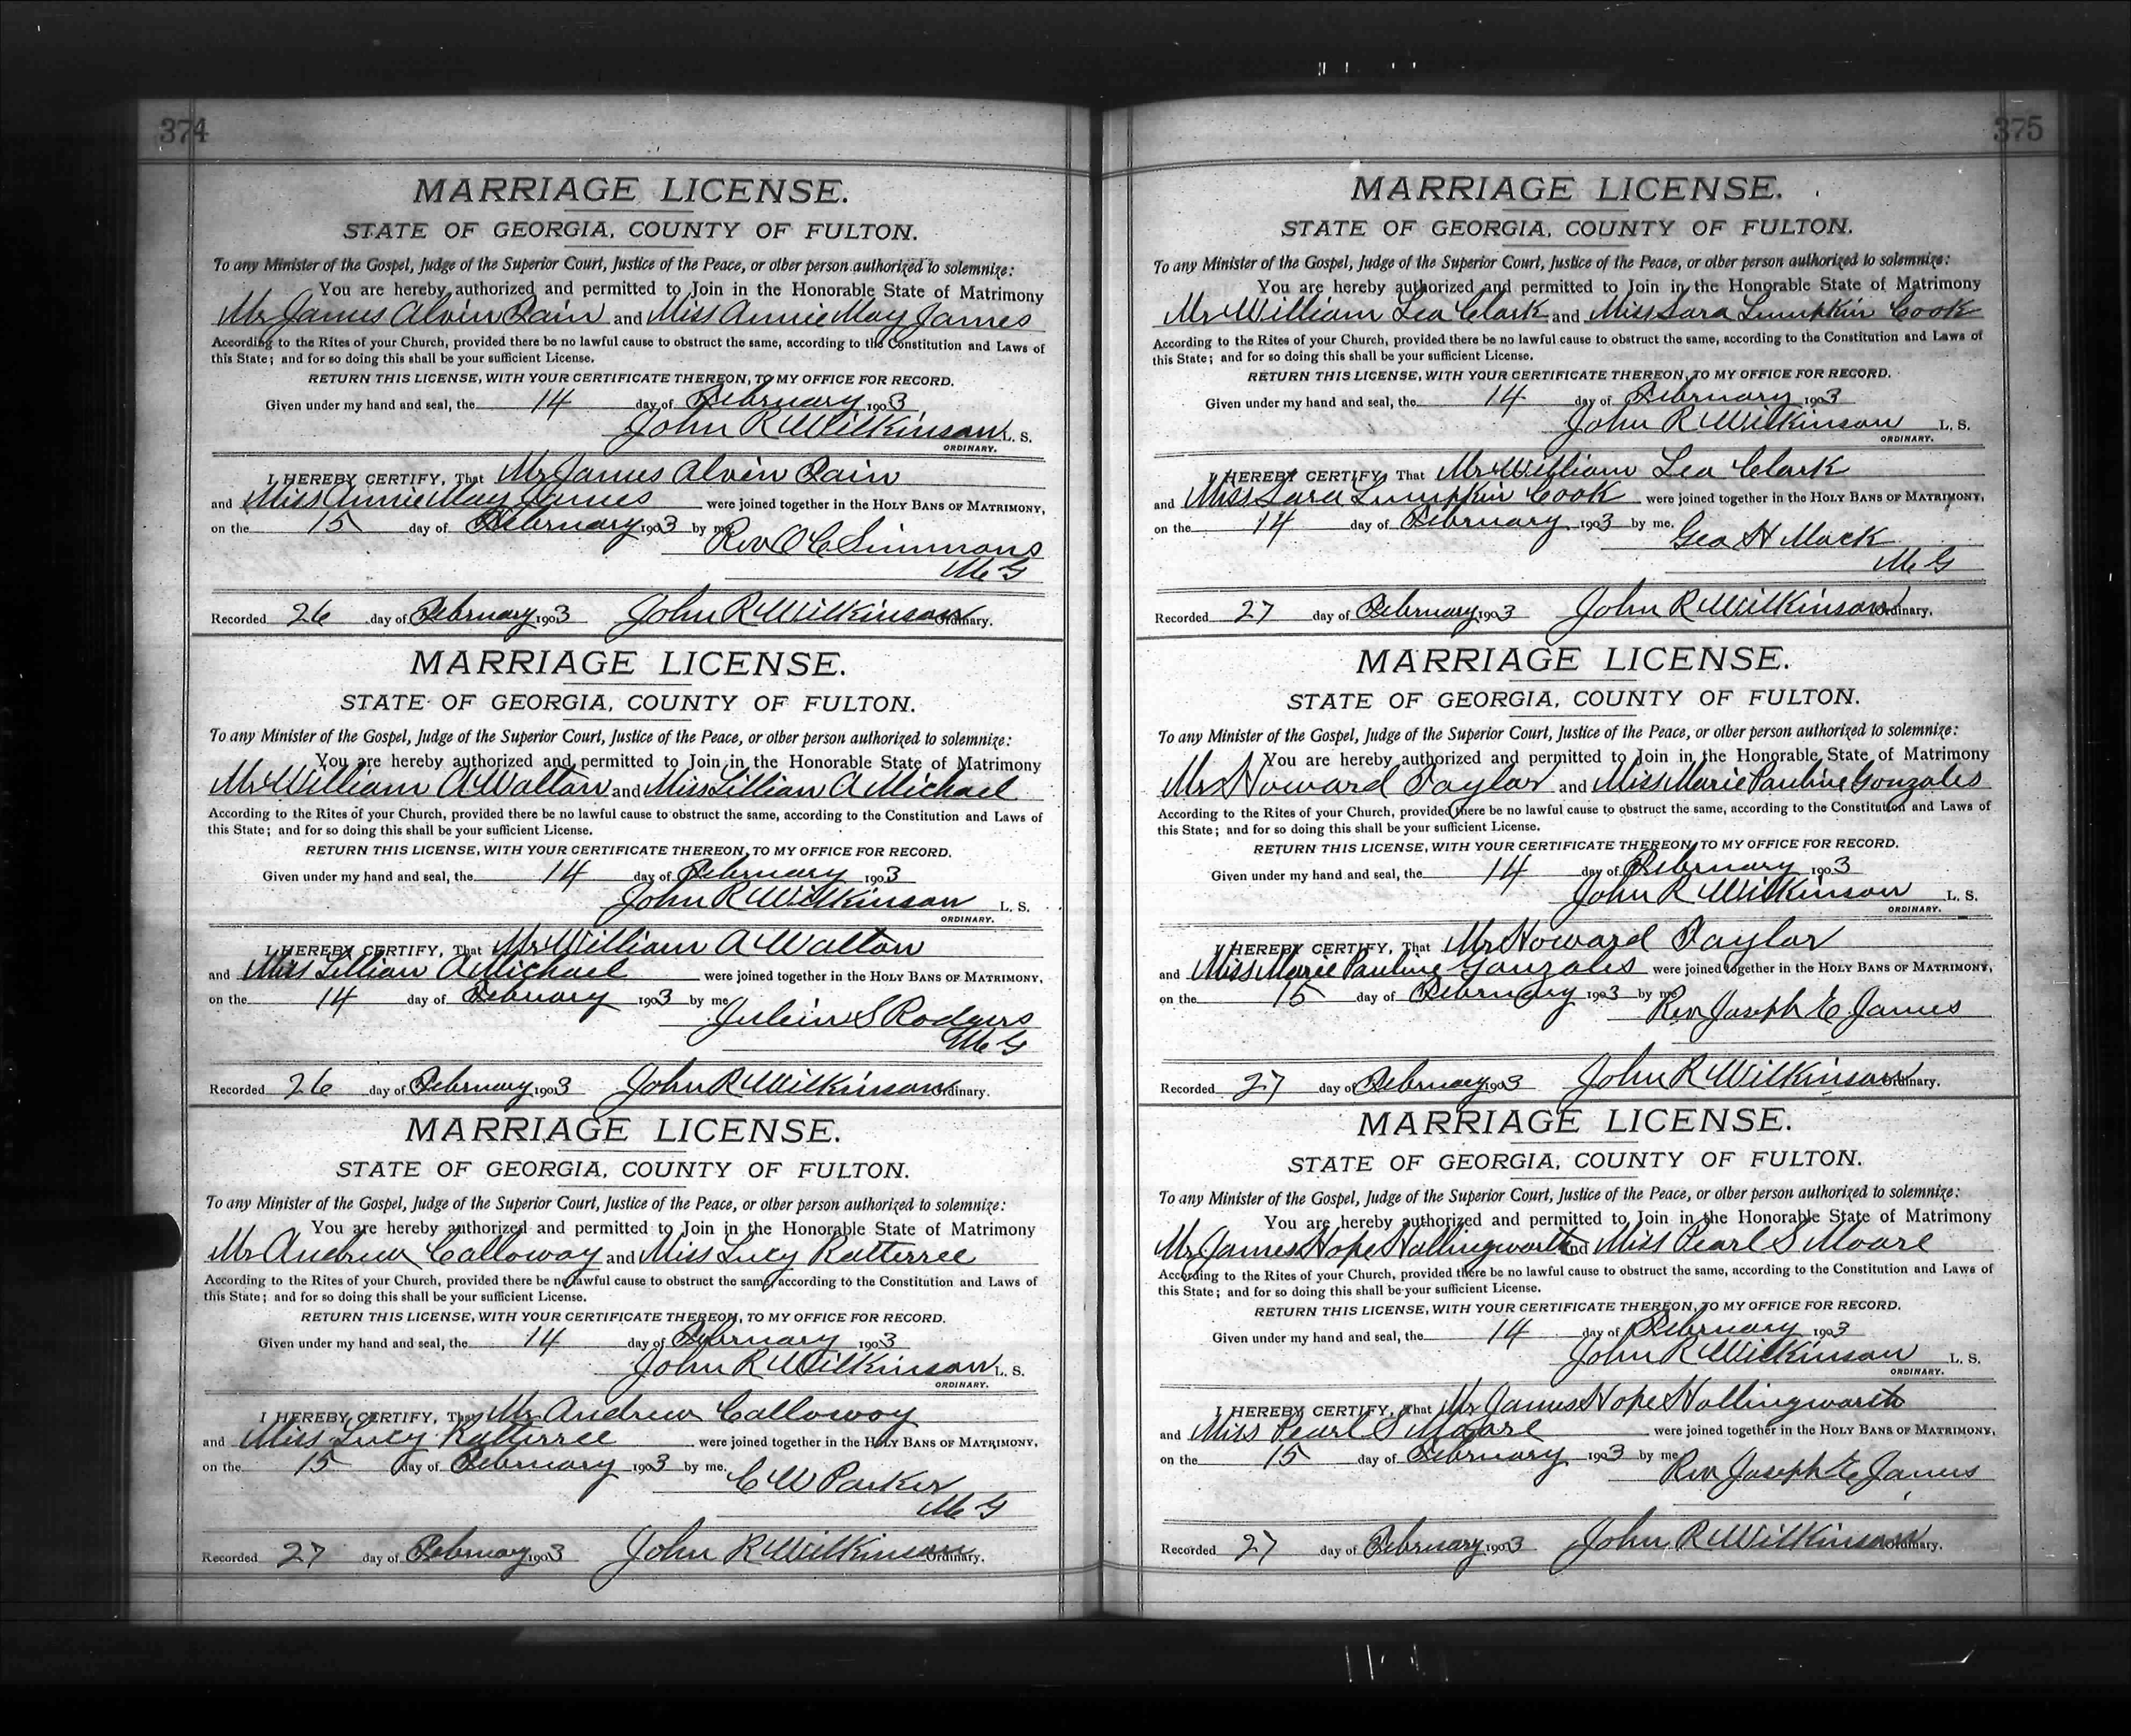 374
MARRIAGE LICENSE.
STATE OF GEORGIA, COUNTY OF FULTON.
To any Minister of the Gospel, Judge of the Superior Court, Justice of the Peace, or other person authorized to solemnize:
You are hereby authorized and permitted to Join in the Honorable State of Matrimony
Mr James Alvin Pain and Miss Annie May James
According to the Rites of your Church, provided there be no lawful cause to obstruct the same, according to the Constitution and Laws of
this State; and for so doing this shall be your sufficient License.
RETURN THIS LICENSE, WITH YOUR CERTIFICATE THEREON, TO MY OFFICE FOR RECORD.
Given under my hand and seal, the 14 day of February 1903
John R Wilkinson L. S.
ORDINARY.
I HEREBY CERTIFY, That Mr James Alvin Pain
and Miss Annie May James were joined together in the HOLY BANS OF MATRIMONY,
on the 15 day of February 1903 by me
Rev O C Simmons
M G
Recorded 26 day of February 1903 John R Wilkinson Ordinary.
MARRIAGE LICENSE.
STATE OF GEORGIA, COUNTY OF FULTON.
To any Minister of the Gospel, Judge of the Superior Court, Justice of the Peace, or other person authorized to solemnize:
You are hereby authorized and permitted to Join in the Honorable State of Matrimony
Mr William A Walton and Miss Lillian A Michael
According to the Rites of your Church, provided there be no lawful cause to obstruct the same, according to the Constitution and Laws of
this State; and for so doing this shall be your sufficient License.
RETURN THIS LICENSE, WITH YOUR CERTIFICATE THEREON, TO MY OFFICE FOR RECORD.
Given under my hand and seal, the 14 day of February 1903
John R Wilkinson L. S.
ORDINARY.
I HEREBY CERTIFY, That Mr William A Walton
and Miss Lillian A Michael were joined together in the HOLY BANS OF MATRIMONY,
on the 14 day of February 1903 by me
Julian S Rodgers
M G
Recorded 26 day of February 1903 John R Wilkinson Ordinary.
MARRIAGE LICENSE.
STATE OF GEORGIA, COUNTY OF FULTON.
To any Minister of the Gospel, Judge of the Superior Court, Justice of the Peace, or other person authorized to solemnize:
You are hereby authorized and permitted to Join in the Honorable State of Matrimony
Mr Andrew Calloway and Miss Lucy Ratterree
According to the Rites of your Church, provided there be no lawful cause to obstruct the same, according to the Constitution and Laws of
this State; and for so doing this shall be your sufficient License.
RETURN THIS LICENSE, WITH YOUR CERTIFICATE THEREON, TO MY OFFICE FOR RECORD.
Given under my hand and seal, the 14 day of February 1903
John R Wilkinson L. S.
ORDINARY.
I HEREBY CERTIFY, That Mr Andrew Calloway
and Miss Lucy Ratterree were joined together in the HOLY BANS OF MATRIMONY,
on the 15 day of February 1903 by me.
C W Parker
M G
Recorded 27 day of February 1903 John R Wilkinson Ordinary.
375
MARRIAGE LICENSE.
STATE OF GEORGIA, COUNTY OF FULTON.
To any Minister of the Gospel, Judge of the Superior Court, Justice of the Peace, or other person authorized to solemnize:
You are hereby authorized and permitted to Join in the Honorable State of Matrimony
Mr William Lea Clark and Miss Sara Lumpkin Cook
According to the Rites of your Church, provided there be no lawful cause to obstruct the same, according to the Constitution and Laws of
this State; and for so doing this shall be your sufficient License.
RETURN THIS LICENSE, WITH YOUR CERTIFICATE THEREON, TO MY OFFICE FOR RECORD.
Given under my hand and seal, the 14 day of February 1903
John R Wilkinson L. S.
ORDINARY.
I HEREBY CERTIFY, That Mr William Lea Clark
and Miss Sara Lumpkin Cook were joined together in the HOLY BANS OF MATRIMONY,
on the 14 day of February 1903 by me.
Geo H Mack
M G
Recorded 27 day of February 1903 John R Wilkinson Ordinary.
MARRIAGE LICENSE.
STATE OF GEORGIA, COUNTY OF FULTON.
To any Minister of the Gospel, Judge of the Superior Court, Justice of the Peace, or other person authorized to solemnize:
You are hereby authorized and permitted to Join in the Honorable State of Matrimony
Mr Howard Taylor and Miss Marie Pauline Gonzales
According to the Rites of your Church, provided there be no lawful cause to obstruct the same, according to the Constitution and Laws of
this State; and for so doing this shall be your sufficient License.
RETURN THIS LICENSE, WITH YOUR CERTIFICATE THEREON, TO MY OFFICE FOR RECORD.
Given under my hand and seal, the 14 day of February 1903
John R Wilkinson L. S.
ORDINARY.
I HEREBY CERTIFY, That Mr Howard Taylor
and Miss Marie Pauline Gonzales were joined together in the HOLY BANS OF MATRIMONY,
on the 15 day of February 1903 by me
Rev Joseph E James
Recorded 27 day of February 1903 John R Wilkinson Ordinary.
MARRIAGE LICENSE.
STATE OF GEORGIA, COUNTY OF FULTON.
To any Minister of the Gospel, Judge of the Superior Court, Justice of the Peace, or other person authorized to solemnize:
You are hereby authorized and permitted to Join in the Honorable State of Matrimony
Mr James Hope Hollingworth and Miss Pearl S Moore
According to the Rites of your Church, provided there be no lawful cause to obstruct the same, according to the Constitution and Laws of
this State; and for so doing this shall be your sufficient License.
RETURN THIS LICENSE, WITH YOUR CERTIFICATE THEREON, TO MY OFFICE FOR RECORD.
Given under my hand and seal, the 14 day of February 1903
John R Wilkinson L. S.
ORDINARY.
I HEREBY CERTIFY, That Mr James Hope Hollingworth
and Miss Pearl S Moore were joined together in the HOLY BANS OF MATRIMONY,
on the 15 day of February 1903 by me
Rev Joseph E James
Recorded 27 day of February 1903 John R Wilkinson Ordinary.